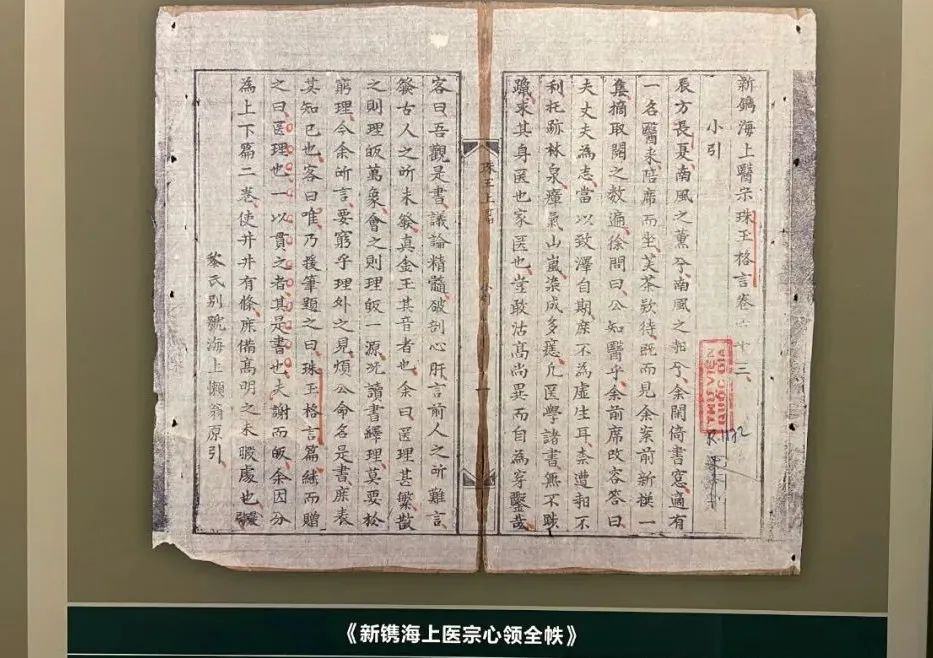 新鐫海上醫宗珠玉格言卷十三
小引
辰方長夏南風之薰兮南風之和兮余閒倚書窓適有
一名醫来陪席而坐芙茶欵待既而見余案前新撰一
集摘取閱之数遍徐問曰公知醫乎余前席改容答曰
夫丈夫為志當以致澤自期庶不為虚生耳柰遭和不
利托跡林泉瘴氣山嵐染成多瘧凢医學諸書無不
獵求其身医也家医也豈敢沽髙尚異而自為穿鑿哉
THƯ VIỆN
QUỐC GIA
R.1132
珠玉上 小引 一
客曰吾觀是書議論精髓破剖心肝言前人之所難言
發古人之所未發真金玉其音者也余曰医理甚繁散
之則理皈萬象會之則理皈一源况讀書繹理莫要於
窮理今余所言要窮乎理外之見煩公命名是書庶表
其知己也客曰唯乃援筆題之曰珠玉格言篇続而贈
之曰医理也一以貫之者其是書也夫謝而皈余因分
為上下篇二卷使井井有條庶備髙明之未暇處也
黎氏別號海上懶翁原引
《新镌海上医宗心领全帙》